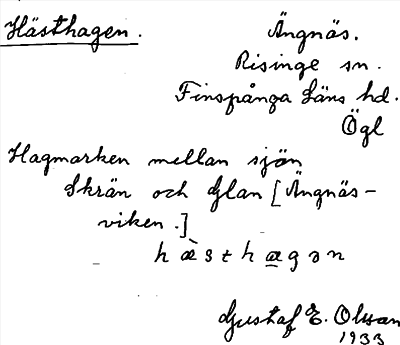 Hästhagen.
Ängnäs.
Risinge sn.
Finspånga läns hd.
Ögl
Hagmarken mellan sjön
Skrän och Glan [Ängnäs-
viken.]
hæ̀sthægən
Gustaf E. Olsson
1933